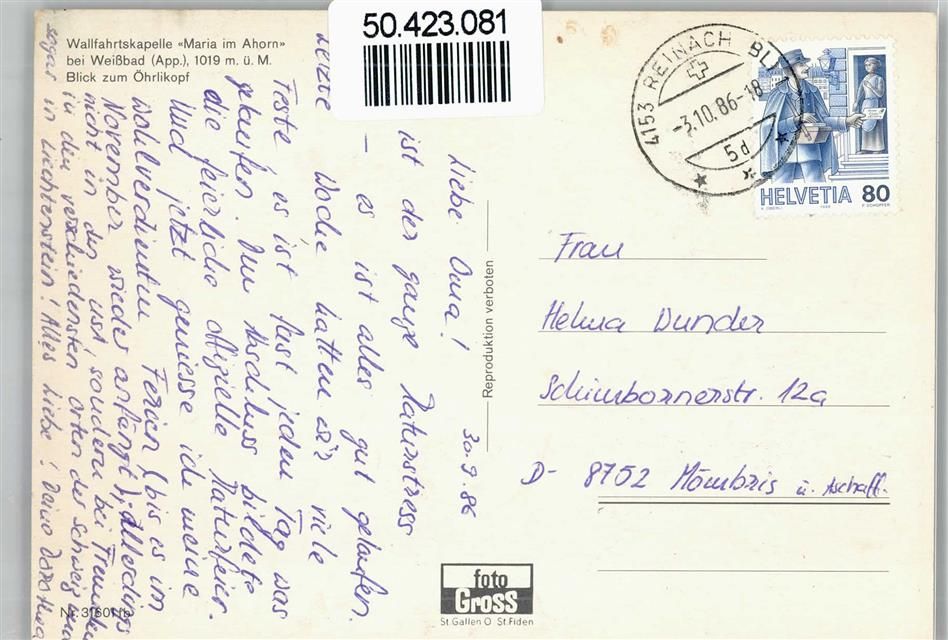 50.423.081
Wallfahrtskapelle «Maria im Ahorn»
bei Weißbad (App.), 1019 m. ü. M.
Blick zum Öhrlikopf
4153 REINACH BL 1
-3.10.86-18
5d
HELVETIA 80
Reproduktion verboten
30.9.86
Liebe Oma!
ist der ganze Maturstress
– es ist alles gut gelaufen.
Letzte Woche hatten wir viele
Feste es ist fast jeden Tag was
gelaufen. Den Abschluss bildete
die feierliche offizielle Maturfeier.
Und jetzt geniesse ich meine
wohlverdienten Ferien (bis es im
November wieder anfängt), allerdings
nicht in den USA, sondern bei Freunden
in den verschiedensten Orten der Schweiz und
sogar in Liechtenstein! Alles Liebe! Deine Dorothea
Frau
Helma Wunder
Schimbornerstr. 12a
D- 8752 Mömbris ü. Aschaff.
foto
Gross
St.Gallen O St.Fiden